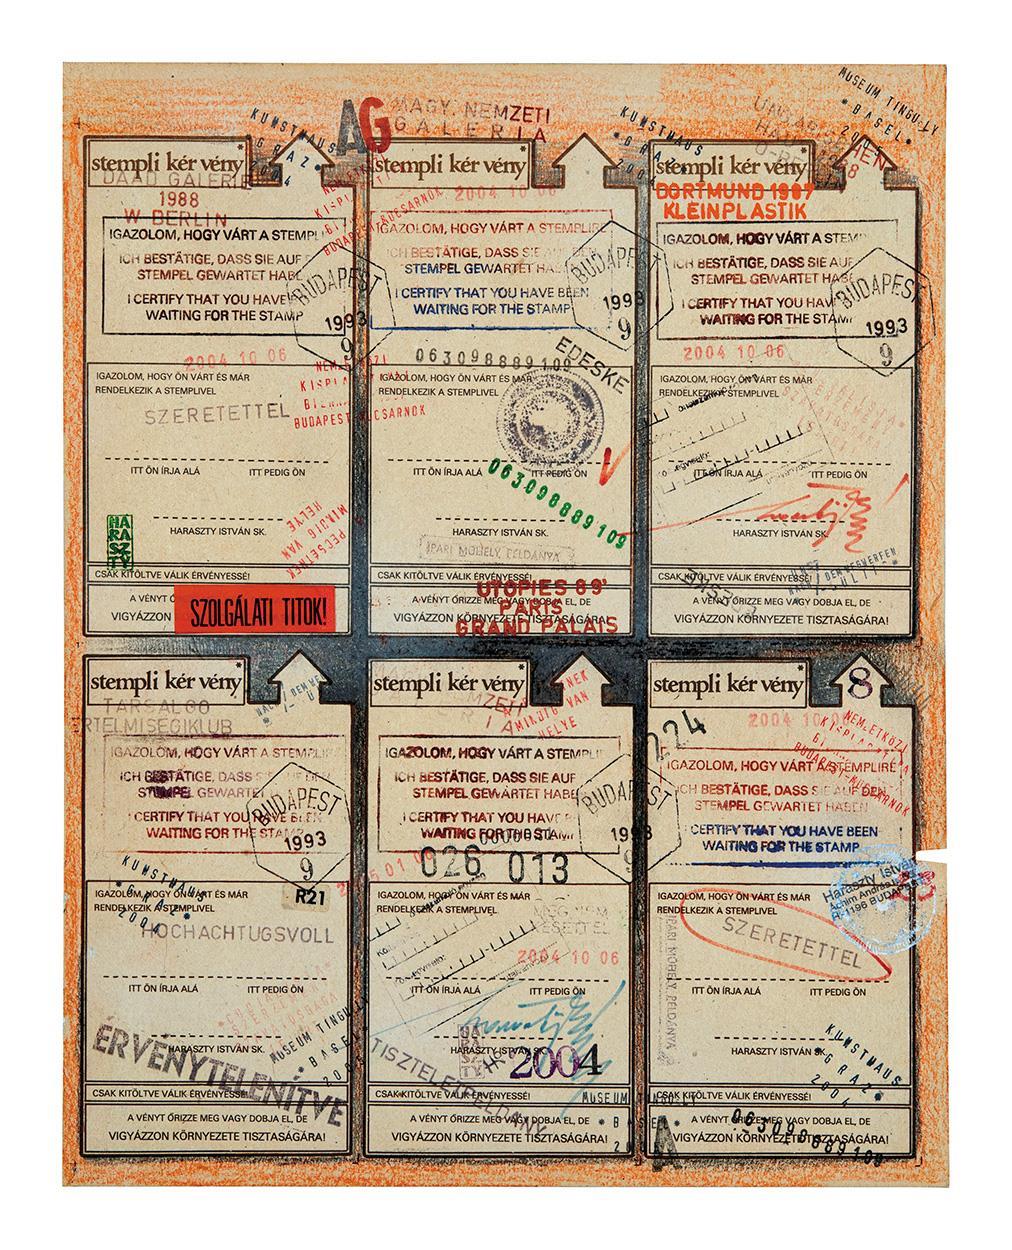 AG
MAGY. NEMZETI
GALERIA
KUNSTHAUS
*GRAZ*
2004
KUNSTHAUS
*GRAZ*
MUSEUM TINGUELY
*BASEL*
stempli kér vény*
DAAD GALERIE
1988
W-BERLIN
IGAZOLOM, HOGY VÁRT A STEMPLI
ICH BESTÄTIGE, DASS SIE AUF
STEMPEL GEWARTET HABE
I CERTIFY THAT YOU HAVE
WAITING FOR THE STAMP
BUDAPEST
1993
9
2004 10 06
IGAZOLOM, HOGY ÖN VÁRT ÉS MÁR
RENDELKEZIK A STEMPLIVEL
SZERETETTEL
BUDAPEST
ITT ÖN ÍRJA ALÁ ITT PEDIG ÖN
HARASZTY ISTVÁN SK.
HARASZTY
PECSÉTNEK
MINDIG VAN
HELYE
CSAK KITÖLTVE VÁLIK ÉRVÉNYESSÉ!
A VÉNYT Ő
VIGYÁZZON
SZOLGÁLATI TITOK!
stempli kér vény*
2004 10 06
IGAZOLOM, HOGY VÁRT A STEMPLIRE
ICH BESTÄTIGE, DASS SIE AUF DEN
STEMPEL GEWARTET HA
I CERTIFY THAT YOU HAVE BEEN
WAITING FOR THE STAMP
BUDAPEST
1993
9
063098889109
EDESKE
IGAZOLOM, HOGY ÖN VÁRT ÉS MÁR
RENDELKEZIK A STEMPLIVEL
063098889109
ITT ÖN ÍRJA ALÁ ITT PEDIG ÖN
HARASZTY ISTVÁN SK.
IPARI MŰHELY, PÉLDÁNYA
CSAK KITÖLTVE VÁLIK ÉRVÉNYESSÉ!
UTOPIES 89'
PARIS
GRAND PALAIS
A VÉNYT ŐRIZZE MEG VAGY DOBJA EL, DE
VIGYÁZZON KÖRNYEZETE TISZTASÁGÁRA!
stempli kér vény*
DORTMUND 1987
KLEINPLASTIK
IGAZOLOM, HOGY VÁRT A STEM
ICH BESTÄTIGE, DASS SIE AUF
STEMPEL GEWARTET HAB
I CERTIFY THAT YOU HAV
WAITING FOR THE STAM
BUDAPEST
1993
9
2004 10 06
IGAZOLOM, HOGY ÖN VÁRT ÉS MÁR
RENDELKEZIK A STEMPLIVEL
ITT ÖN ÍRJA ALÁ ITT PEDIG ÖN
HARASZTY ISTVÁN SK.
CSAK KITÖLTVE VÁLIK ÉRVÉNYESSÉ!
A VÉNYT ŐRIZZE MEG VAGY DOBJA EL, DE
VIGYÁZZON KÖRNYEZETE TISZTASÁGÁRA!
stempli kér vény*
TARSALGO
ERTELMISEGIKLUB
IGAZOLOM, HOGY VÁRT A STEMPLIR
ICH BESTÄTIGE, DASS SIE AUF DEN
STEMPEL GEWARTET
I CERTIFY THAT YOU HAVE BEEN
WAITING FOR THE STAMP
BUDAPEST
1993
9
KUNSTHAUS
*GRAZ*
2004
R21
IGAZOLOM, HOGY ÖN VÁRT ÉS MÁR
RENDELKEZIK A STEMPLIVEL
HOCHACHTUGSVOLL
ITT ÖN ÍRJA ALÁ ITT PEDIG ÖN
HARASZTY ISTVÁN SK.
MUSEUM TINGUELY
BASEL
2004
ÉRVÉNYTELENITVE
CSAK KITÖLTVE VÁLIK ÉRVÉNYESSÉ!
A VÉNYT ŐRIZZE MEG VAGY DOBJA EL, DE
VIGYÁZZON KÖRNYEZETE TISZTASÁGÁRA!
stempli kér vény*
MINDIG VAN
HELYE
IGAZOLOM, HOGY VÁRT A STEMPLI
ICH BESTÄTIGE, DASS SIE AUF
STEMPEL GEWARTET HABE
I CERTIFY THAT YOU HAVE
WAITING FOR THE STAM
BUDAPEST
1993
9
026 013
IGAZOLOM, HOGY ÖN VÁRT ÉS MÁR
RENDELKEZIK A STEMPLIVEL
MEG NEM
KESETTEL
2004 10 06
ITT ÖN ÍRJA ALÁ ITT PEDIG ÖN
HARASZTY ISTVÁN SK.
HARASZTY
2004
TISZTELETPÉLDÁNY
CSAK KITÖLTVE VÁLIK ÉRVÉNYESSÉ!
MUSEUM TINGUELY
A VÉNYT ŐRIZZE MEG VAGY DOBJA EL, DE
VIGYÁZZON KÖRNYEZETE TISZTASÁGÁRA!
stempli kér vény*
8
224
2004 10 0
NEMZETKÖZI
BUDAPEST MŰCSARNOK
IGAZOLOM, HOGY VÁRT A STEMPLIRE
ICH BESTÄTIGE, DASS SIE AUF DEN
STEMPEL GEWARTET HABEN
I CERTIFY THAT YOU HAVE BEEN
WAITING FOR THE STAMP
Haraszty István
Achim András
H-1196 BUDAPEST
IGAZOLOM, HOGY ÖN VÁRT ÉS MÁR
RENDELKEZIK A STEMPLIVEL
SZERETETTEL
IPARI MŰHELY, PÉLDÁNYA
ITT ÖN ÍRJA ALÁ ITT PEDIG ÖN
HARASZTY ISTVÁN SK.
KUNSTHAUS
*GRAZ*
2004
CSAK KITÖLTVE VÁLIK ÉRVÉNYESSÉ!
A
A VÉNYT ŐRIZZE MEG VAGY DOBJA EL, DE
VIGYÁZZON KÖRNYEZETE TISZTASÁGÁRA!
063098889109